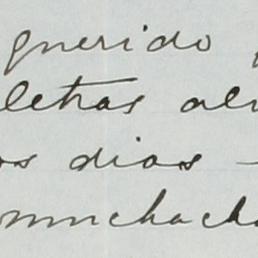 querido
letras
os dias -
muchach